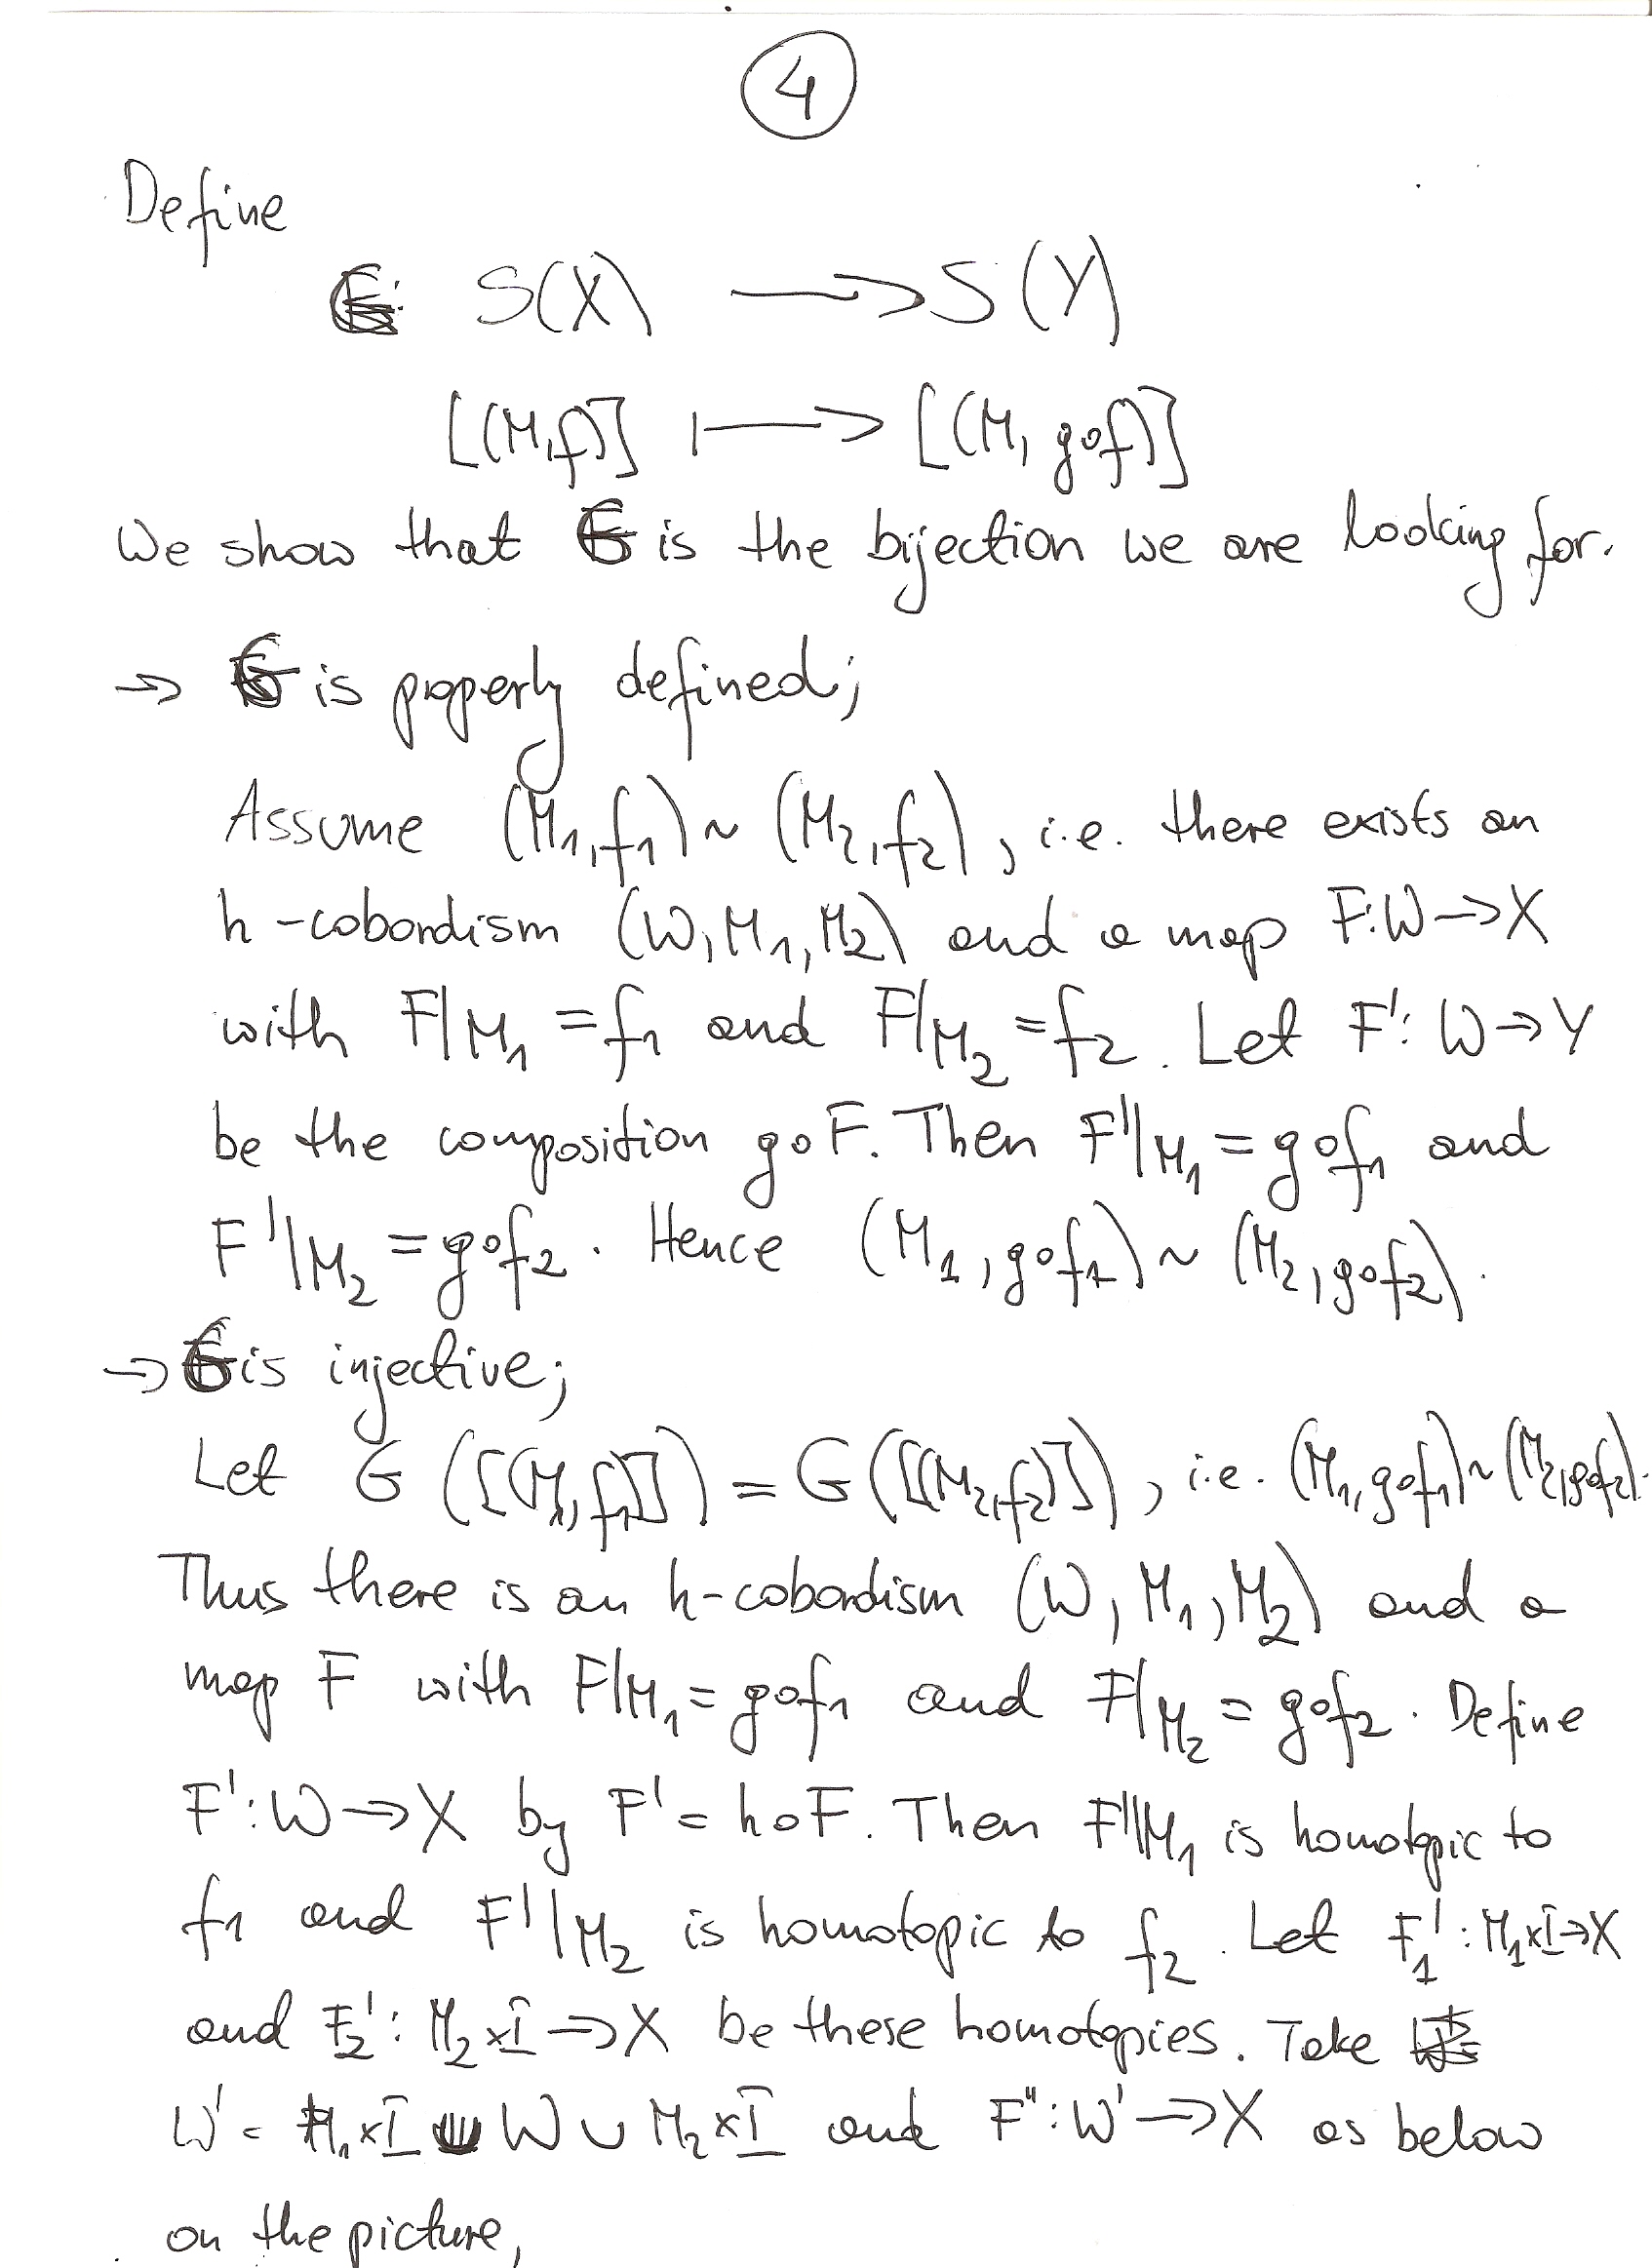 4
Define
G: S(X) ⟶ S(Y)
[(M,f)] ⟼ [(M, g∘f)]
We show that G is the bijection we are looking for.
→ G is properly defined;
Assume (M₁,f₁) ~ (M₂,f₂), i.e. there exists an
h-cobordism (W, M₁, M₂) and a map F:W→X
with F|M₁ = f₁ and F|M₂ = f₂. Let F': W→Y
be the composition g∘F. Then F'|M₁ = g∘f₁ and
F'|M₂ = g∘f₂. Hence (M₁, g∘f₁) ~ (M₂, g∘f₂).
→ G is injective;
Let G([(M₁,f₁)]) = G([(M₂,f₂)]), i.e. (M₁,g∘f₁)~(M₂,g∘f₂).
Thus there is an h-cobordism (W, M₁, M₂) and a
map F with F|M₁ = g∘f₁ and F|M₂ = g∘f₂. Define
F': W→X by F' = h∘F. Then F'|M₁ is homotopic to
f₁ and F'|M₂ is homotopic to f₂. Let F₁': M₁×I→X
and F₂': M₂×I→X be these homotopies. Take
W' = M₁×I ∪ W ∪ M₂×I and F'': W'→X as below
on the picture,